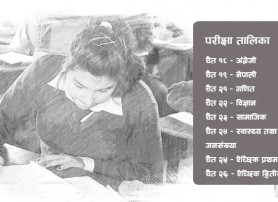 परीक्षा तालिका
चैत १८ - अंग्रेजी
चैत १९ - नेपाली
चैत २१ - गणित
चैत २२ - विज्ञान
चैत २३ - सामाजिक
चैत २४ - स्वास्थ्य तथा
जनसंख्या
चैत २५ - ऐच्छिक प्रथम
चैत २६ - ऐच्छिक द्वितीय